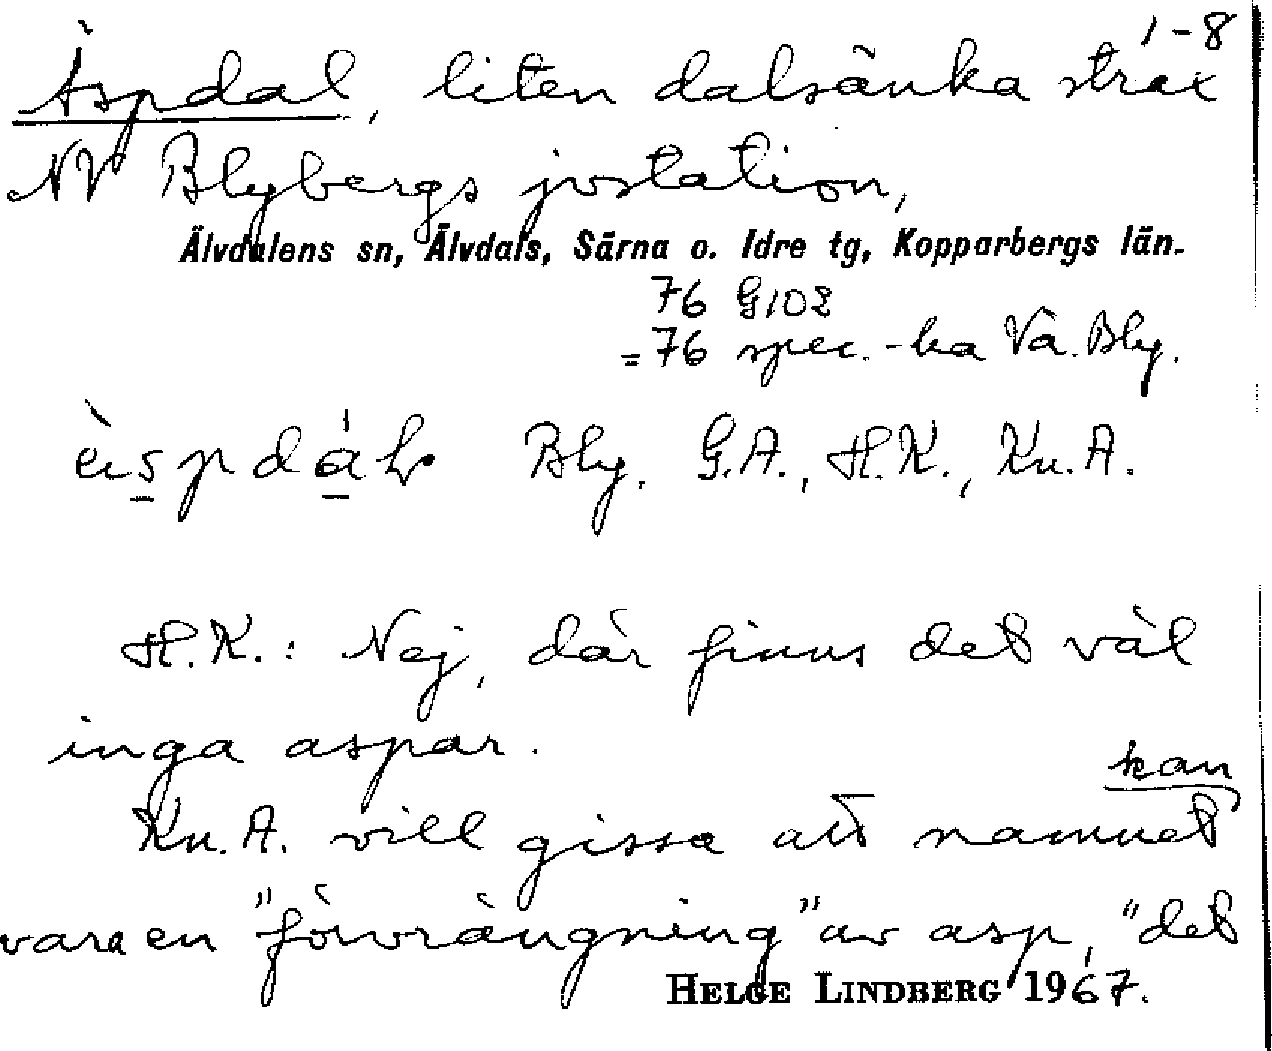 1-8
Äspdal, liten dalsänka strax
NV Blybergs jvstation,
Älvdalens sn, Älvdals, Särna o. Idre tg, Kopparbergs län.
76 G102
=76 spec.-ka Vä. Bly.
Bly. G.A., H.K., Kn.A.
H.K.: Nej, där finns det väl
inga aspar.
kan
Kn.A. vill gissa att namnet
vara en "förvrängning" av asp, "det
HELGE LINDBERG 1967.